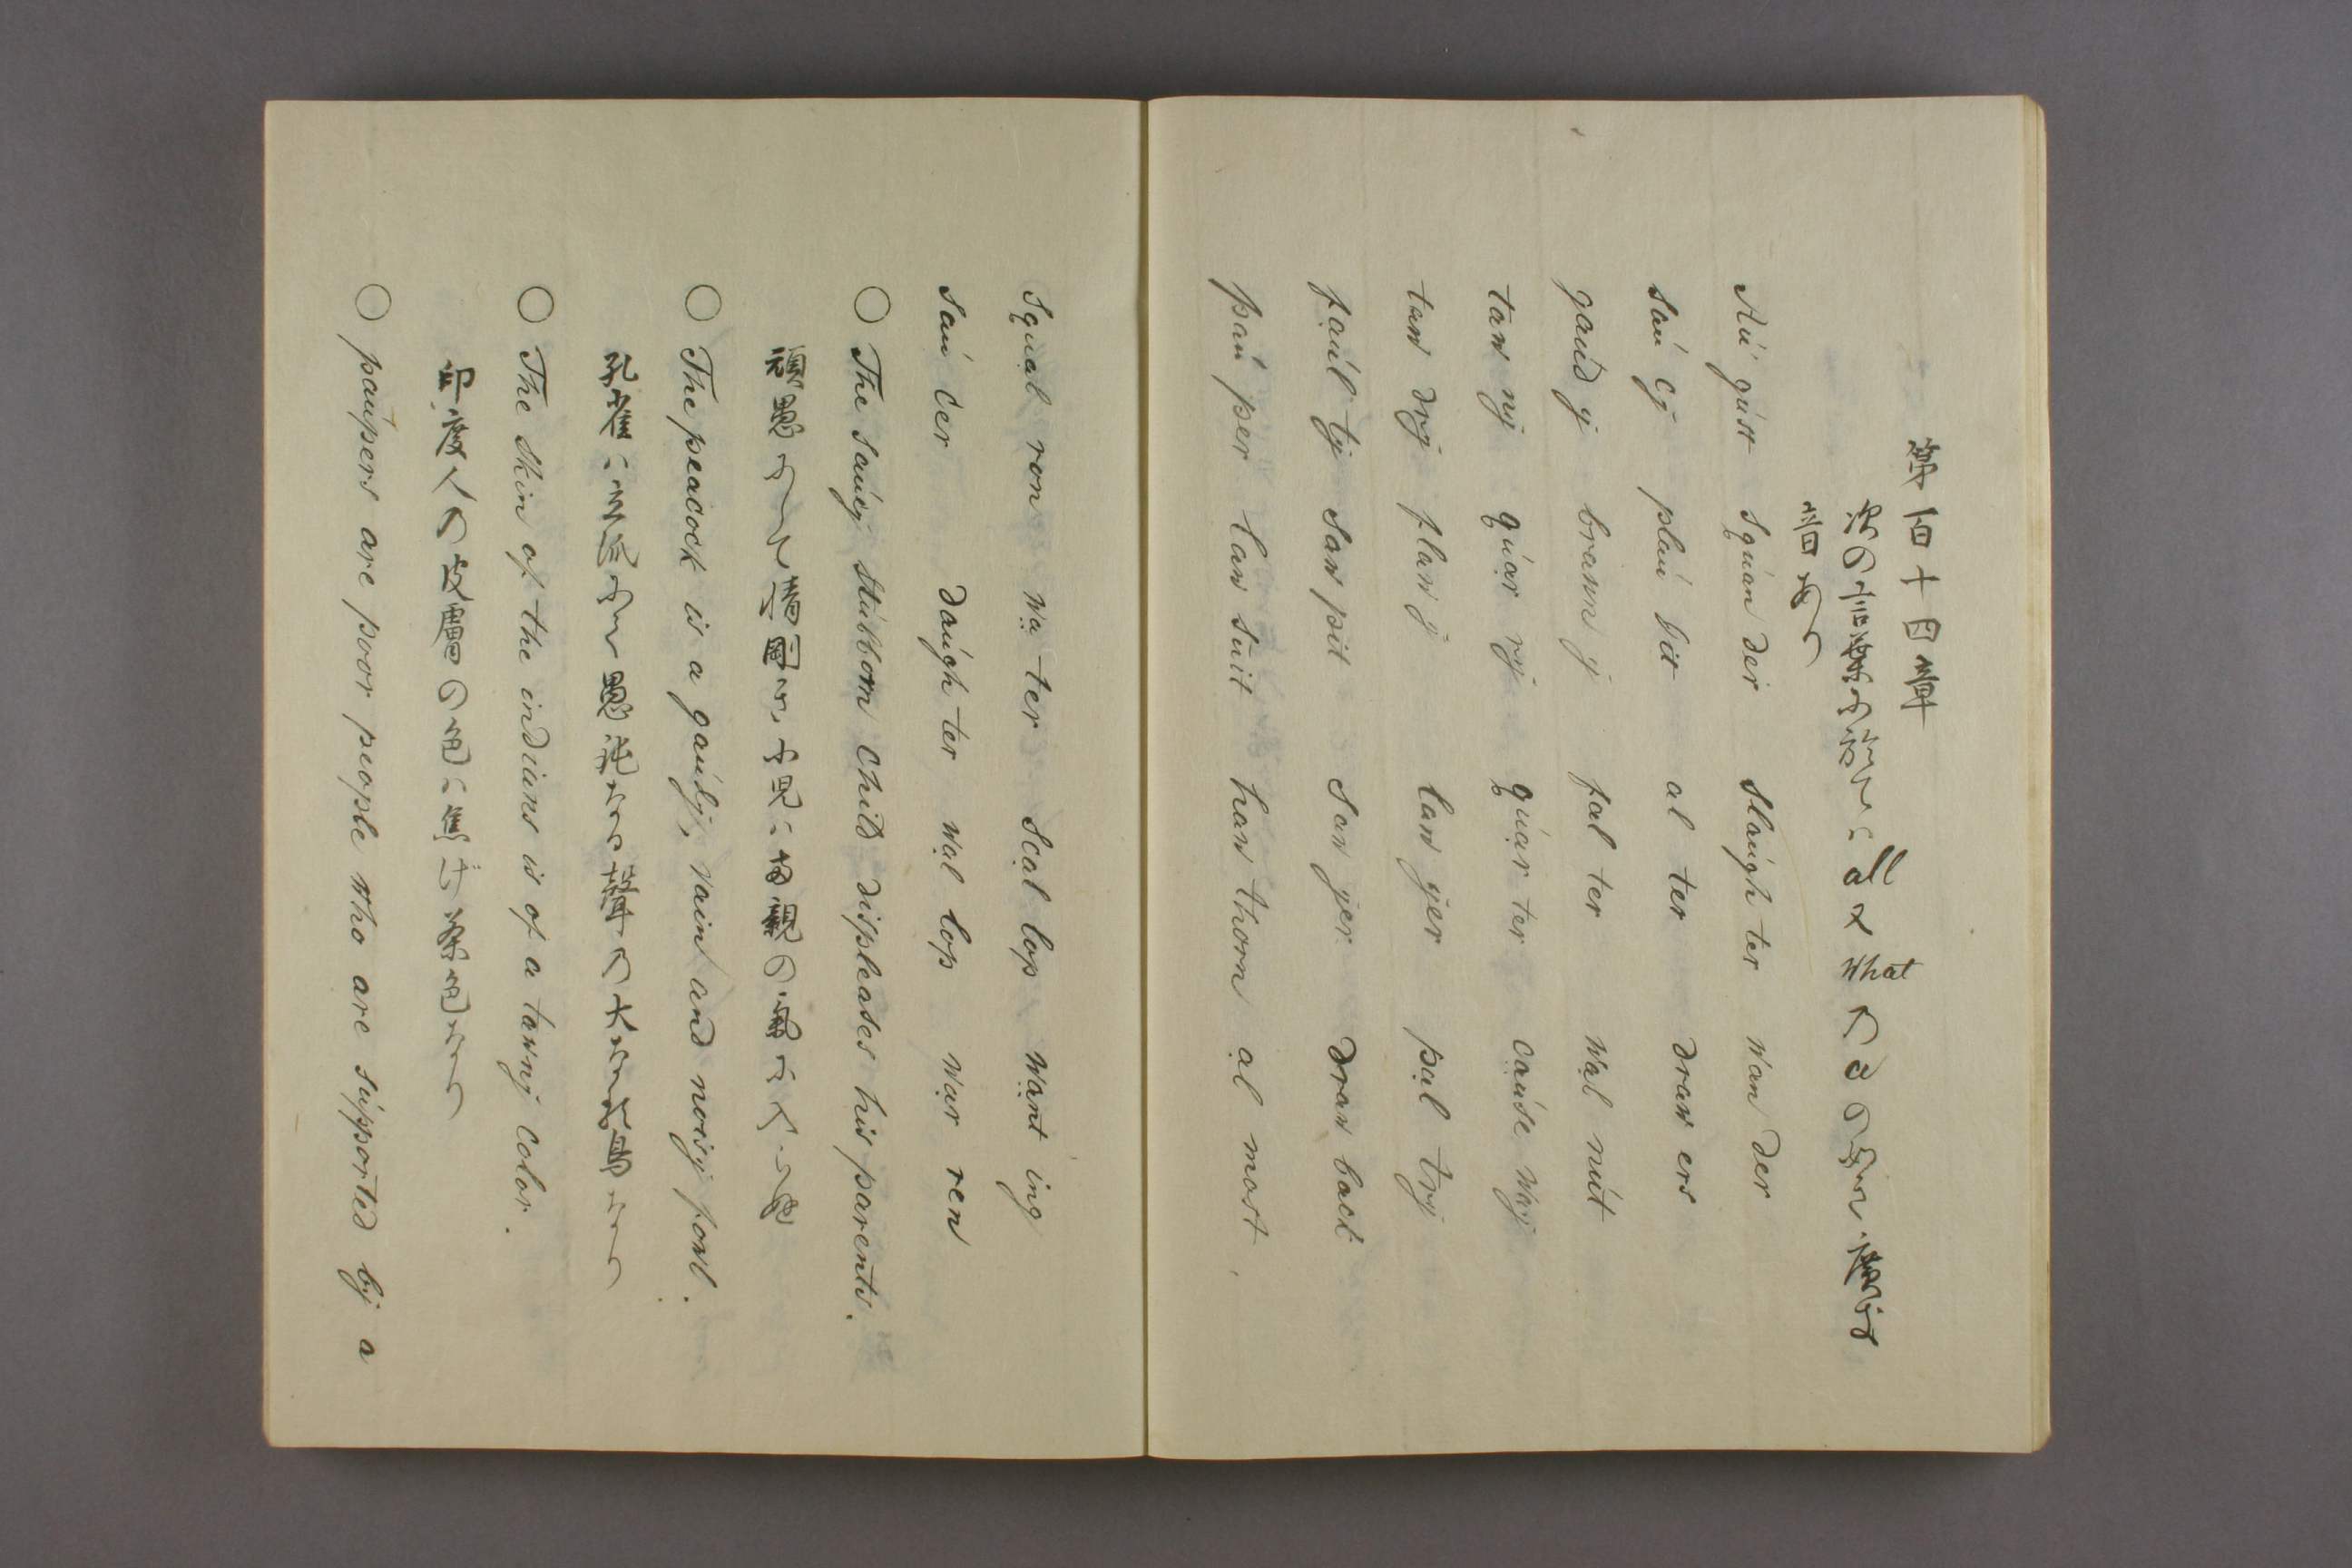 第百十四章
次の言葉に於ては all 又 what の a の如く廣き
音あり
Au gust squan der slaugh ter wan der
sau cy plau dit al ter draw ers
gaud y brawn y fal ter wal nut
taw ny quar ry quar ter cause way
taw dry flaw y law yer pal try
faul ty saw pit saw yer draw back
pau per law suit haw thorn al most
Squad ron wa ter scal lop want ing
sau cer daugh ter wal lop war ren
○ The saucy stubborn child displeases his parents.
頑愚にして情剛き小児は両親の氣に入らぬ
○ The peacock is a gaudy, vain and noisy fowl.
孔雀は立派にて愚鈍なる聲の大なる鳥なり
○ The skin of the indians is of a tawny color.
印度人の皮膚の色は焦げ茶色なり
○ paupers are poor people who are supported by a